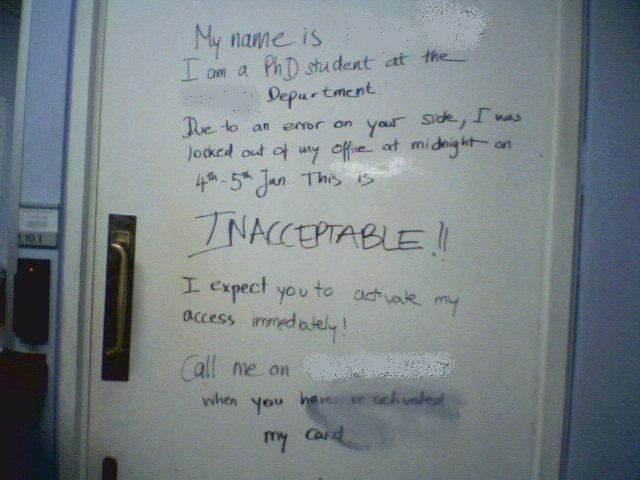 My name is
I am a PhD student at the
Department
Due to an error on your side, I was
locked out of my office at midnight on
4th-5th Jan. This is
INACCEPTABLE!!
I expect you to activate my
access immediately!
Call me on
when you have re activated
my card